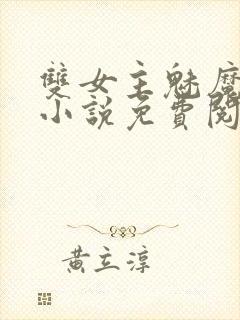 雙女主魅魔
小說免費閱
黃立淳